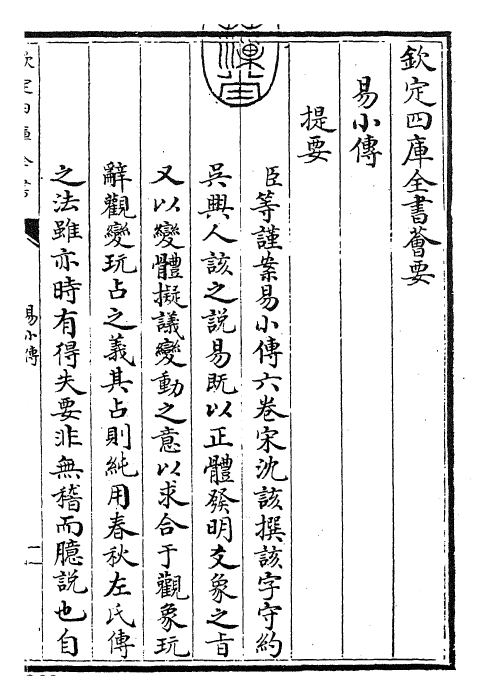 欽定四庫全書薈要
易小傳
提要
臣等謹案易小傳六卷宋沈該撰該字守約
吳興人該之說易既以正體發明爻象之旨
又以變體擬議變動之意以求合于觀象玩
辭觀變玩占之義其占則純用春秋左氏傳
之法雖亦時有得失要非無稽而臆說也自
欽定四庫全書
易小傳
二